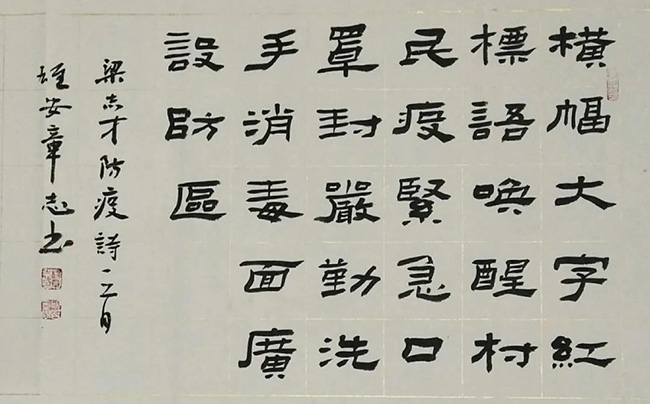 橫幅大字紅
標語喚醒村
民疫緊急口
罩封嚴勤洗
手消毒面廣
設防區
梁志才防疫詩一首
雄安章志书